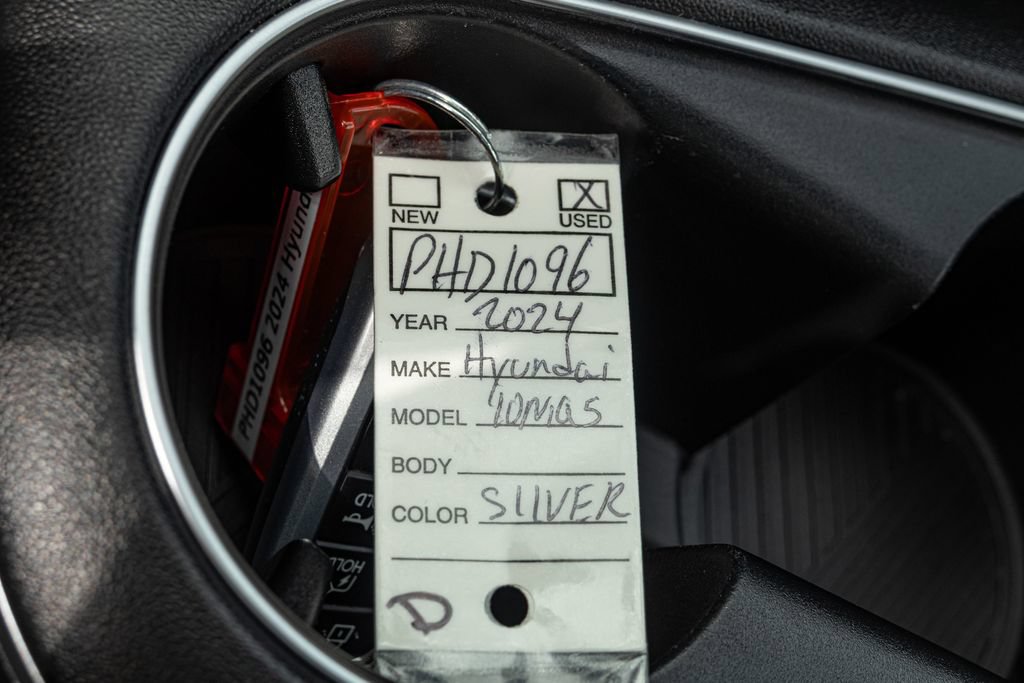 NEW
USED
PHD1096
YEAR 2024
MAKE Hyundai
MODEL IONIQ5
BODY
COLOR SIlVER
D
PHD1096 2024 Hyund
HOLD